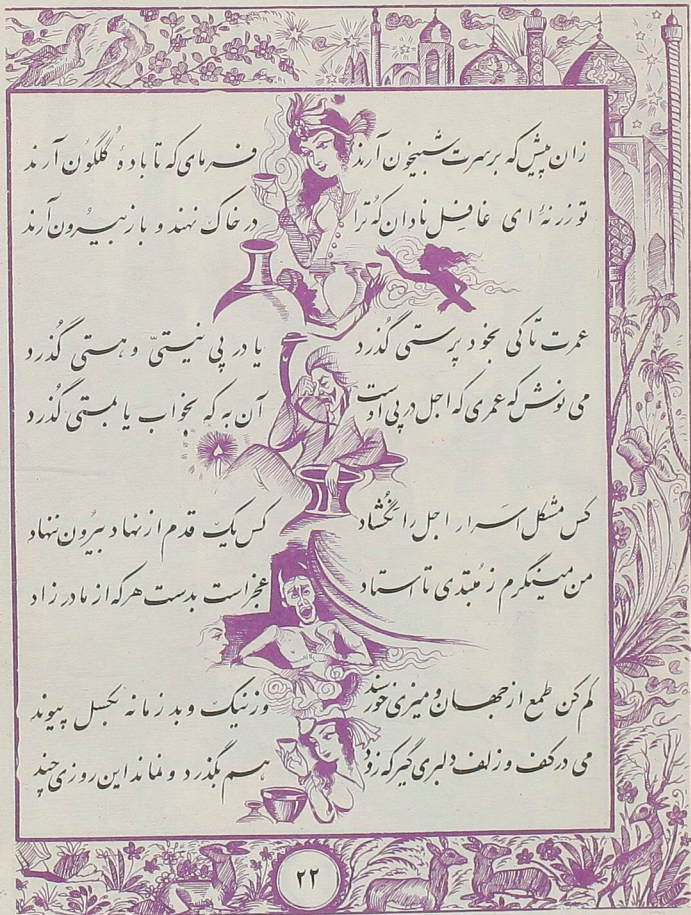 زان پیش که بر سرت شبیخون آرند فرمای که تا بادهٔ گلگون آرند
تو زر نهٔ ای غافل نادان که ترا در خاک نهند و باز بیرون آرند
عمرت تا کی بخود پرستی گذرد یا در پی نیستی و هستی گذرد
می نوش که عمری که اجل در پی اوست آن به که بخواب یا بمستی گذرد
کس مشکل اسرار اجل را نگشاد کس یک قدم از نهاد بیرون ننهاد
من مینگرم ز مبتدی تا استاد عجز است بدست هر که از مادر زاد
کم کن طمع از جهان و میزی خورسند وز نیک و بد زمانه بگسل پیوند
می در کف و زلف دلبری گیر که زود هم بگذرد و نماند این روزی چند
۲۲